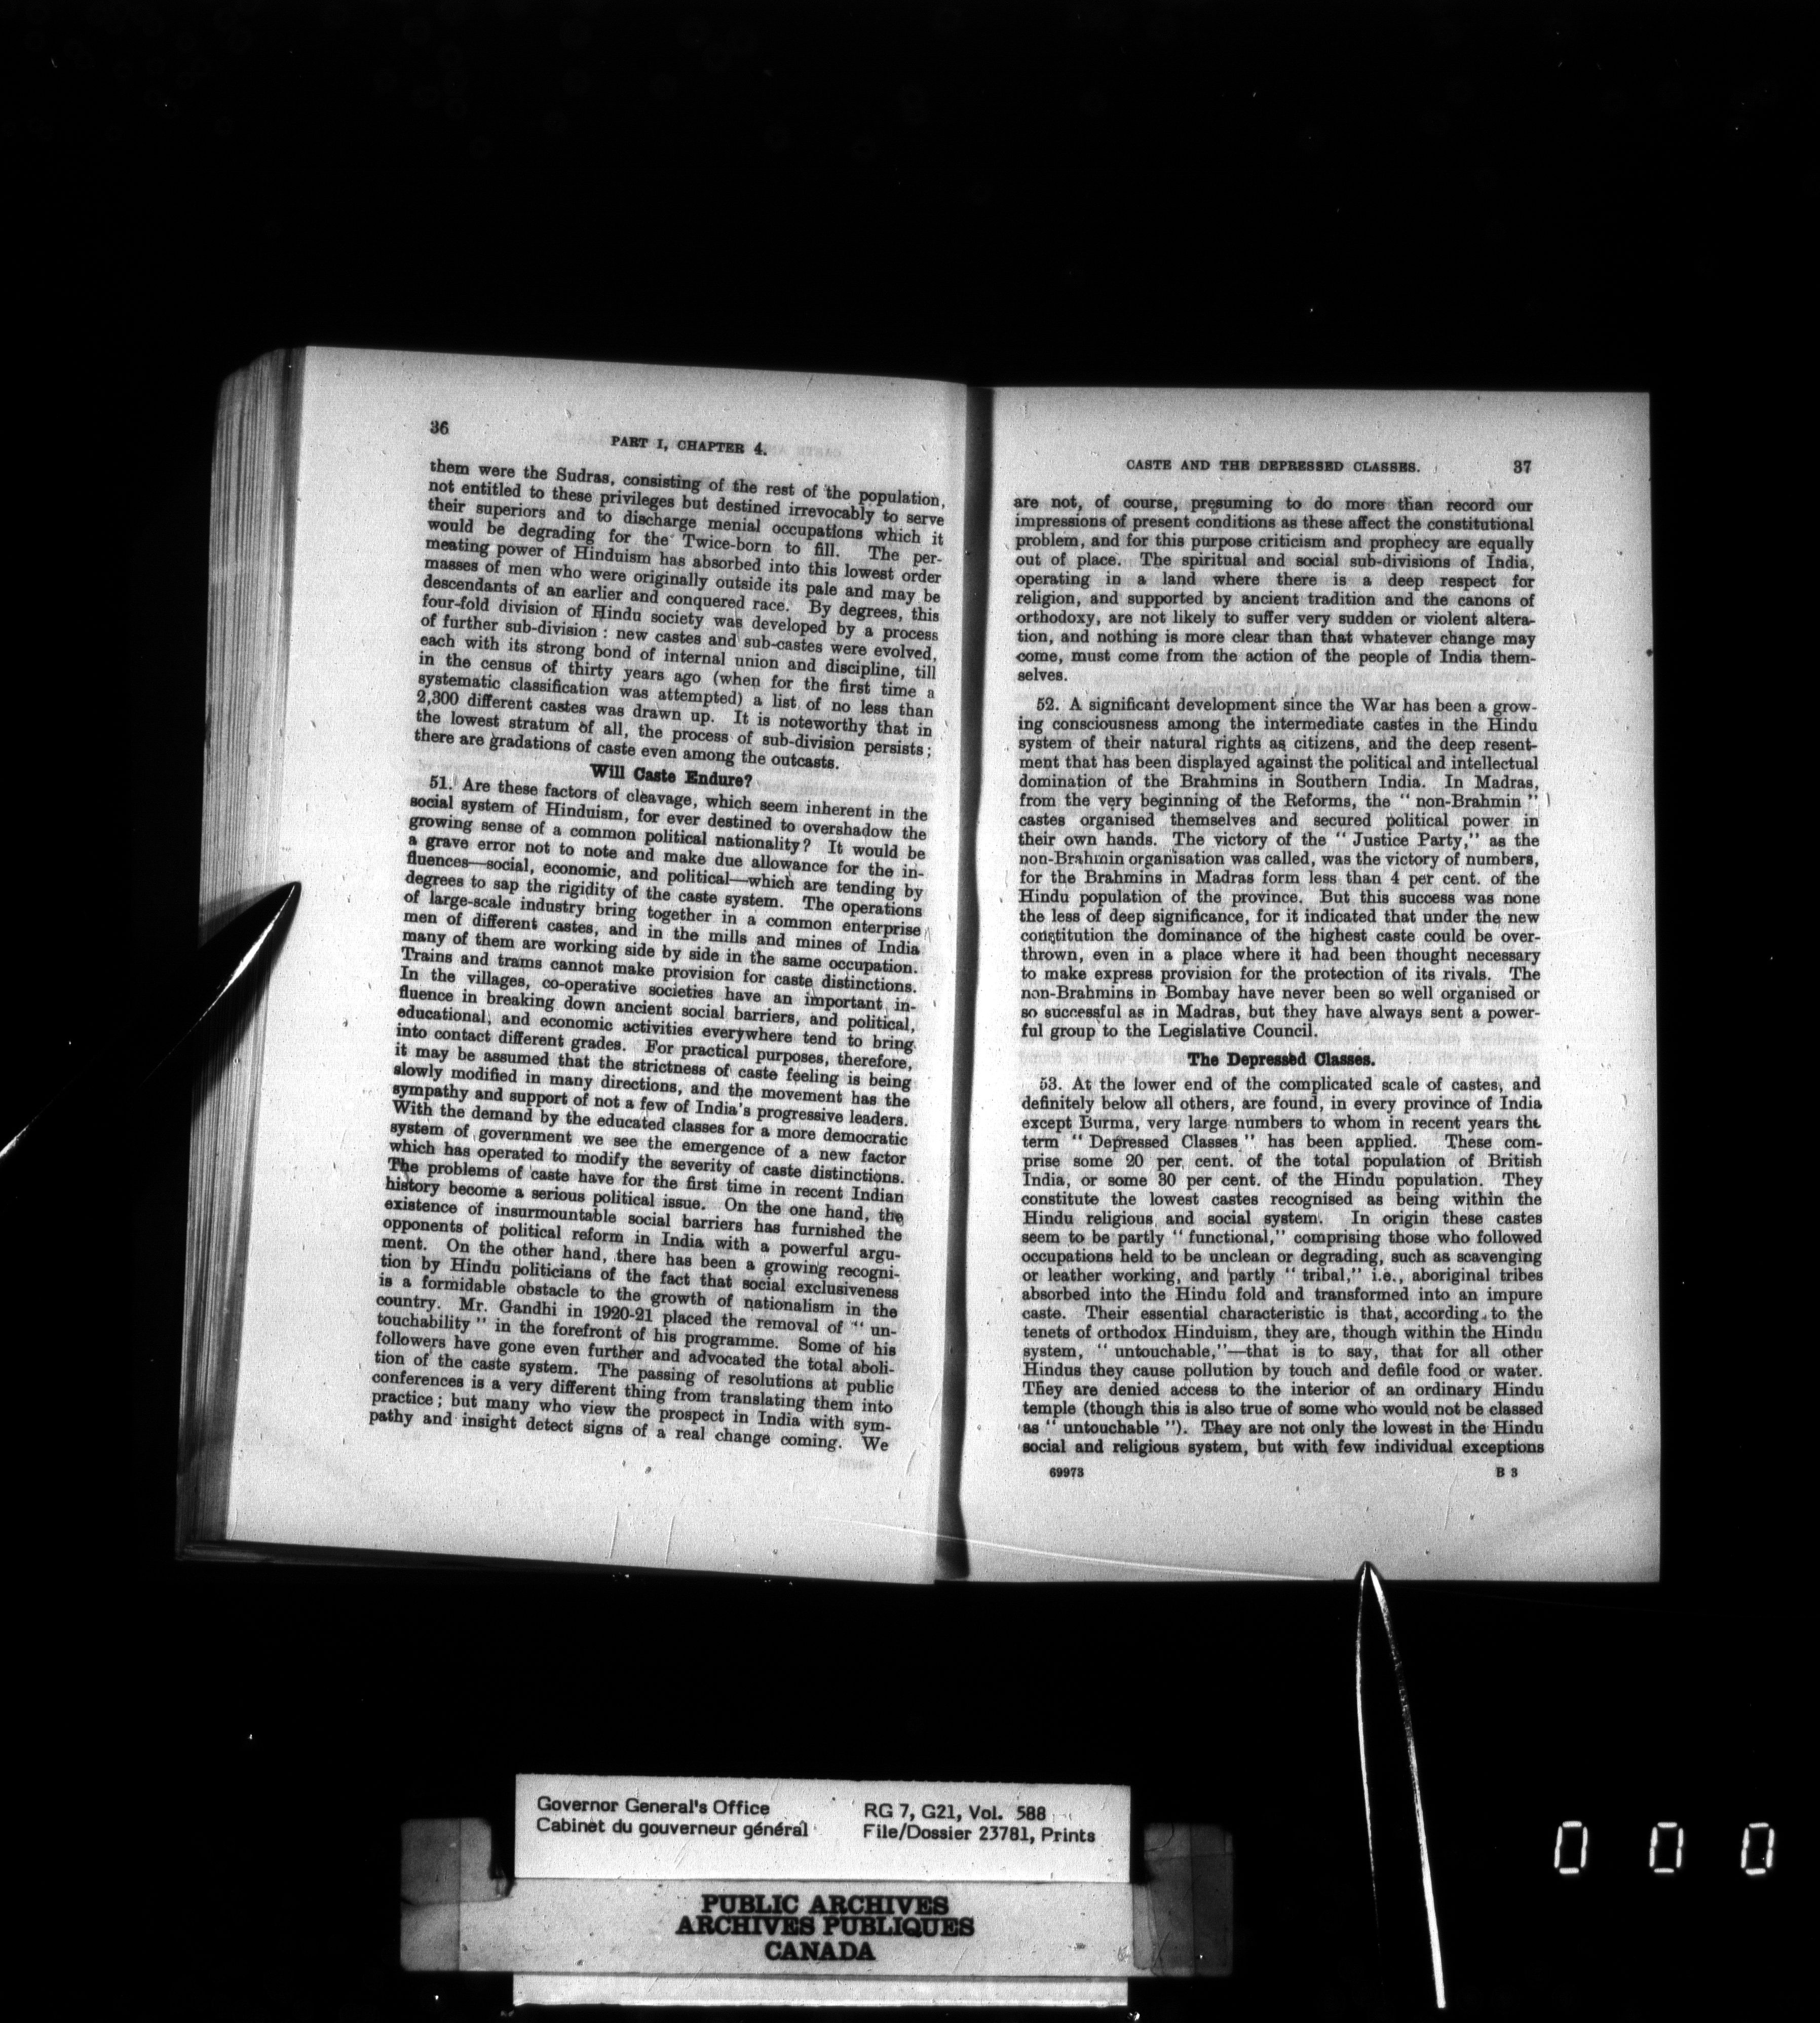 36
PART I, CHAPTER 4.
them were the Sudras, consisting of the rest of the population,
not entitled to these privileges but destined irrevocably to serve
their superiors and to discharge menial occupations which it
would be degrading for the Twice-born to fill. The per-
meating power of Hinduism has absorbed into this lowest order
masses of men who were originally outside its pale and may be
descendants of an earlier and conquered race. By degrees, this
four-fold division of Hindu society was developed by a process
of further sub-division: new castes and sub-castes were evolved,
each with its strong bond of internal union and discipline, till
in the census of thirty years ago (when for the first time a
systematic classification was attempted) a list of no less than
2,300 different castes was drawn up. It is noteworthy that in
the lowest stratum of all, the process of sub-division persists;
there are gradations of caste even among the outcasts.
Will Caste Endure?
51. Are these factors of cleavage, which seem inherent in the
social system of Hinduism, for ever destined to overshadow the
growing sense of a common political nationality? It would be
a grave error not to note and make due allowance for the in-
fluences—social, economic, and political—which are tending by
degrees to sap the rigidity of the caste system. The operations
of large-scale industry bring together in a common enterprise
men of different castes, and in the mills and mines of India
many of them are working side by side in the same occupation.
Trains and trams cannot make provision for caste distinctions.
In the villages, co-operative societies have an important in-
fluence in breaking down ancient social barriers, and political,
educational, and economic activities everywhere tend to bring
into contact different grades. For practical purposes, therefore,
it may be assumed that the strictness of caste feeling is being
slowly modified in many directions, and the movement has the
sympathy and support of not a few of India's progressive leaders.
With the demand by the educated classes for a more democratic
system of government we see the emergence of a new factor
which has operated to modify the severity of caste distinctions.
The problems of caste have for the first time in recent Indian
history become a serious political issue. On the one hand, the
existence of insurmountable social barriers has furnished the
opponents of political reform in India with a powerful argu-
ment. On the other hand, there has been a growing recogni-
tion by Hindu politicians of the fact that social exclusiveness
is a formidable obstacle to the growth of nationalism in the
country. Mr. Gandhi in 1920-21 placed the removal of "un-
touchability" in the forefront of his programme. Some of his
followers have gone even further and advocated the total aboli-
tion of the caste system. The passing of resolutions at public
conferences is a very different thing from translating them into
practice; but many who view the prospect in India with sym-
pathy and insight detect signs of a real change coming. We
CASTE AND THE DEPRESSED CLASSES. 37
are not, of course, presuming to do more than record our
impressions of present conditions as these affect the constitutional
problem, and for this purpose criticism and prophecy are equally
out of place. The spiritual and social sub-divisions of India,
operating in a land where there is a deep respect for
religion, and supported by ancient tradition and the canons of
orthodoxy, are not likely to suffer very sudden or violent altera-
tion, and nothing is more clear than that whatever change may
come, must come from the action of the people of India them-
selves.
52. A significant development since the War has been a grow-
ing consciousness among the intermediate castes in the Hindu
system of their natural rights as citizens, and the deep resent-
ment that has been displayed against the political and intellectual
domination of the Brahmins in Southern India. In Madras,
from the very beginning of the Reforms, the "non-Brahmin"
castes organised themselves and secured political power in
their own hands. The victory of the "Justice Party," as the
non-Brahmin organisation was called, was the victory of numbers,
for the Brahmins in Madras form less than 4 per cent. of the
Hindu population of the province. But this success was none
the less of deep significance, for it indicated that under the new
constitution the dominance of the highest caste could be over-
thrown, even in a place where it had been thought necessary
to make express provision for the protection of its rivals. The
non-Brahmins in Bombay have never been so well organised or
so successful as in Madras, but they have always sent a power-
ful group to the Legislative Council.
The Depressed Classes.
53. At the lower end of the complicated scale of castes, and
definitely below all others, are found, in every province of India
except Burma, very large numbers to whom in recent years the
term "Depressed Classes" has been applied. These com-
prise some 20 per cent. of the total population of British
India, or some 30 per cent. of the Hindu population. They
constitute the lowest castes recognised as being within the
Hindu religious and social system. In origin these castes
seem to be partly "functional," comprising those who followed
occupations held to be unclean or degrading, such as scavenging
or leather working, and partly "tribal," i.e., aboriginal tribes
absorbed into the Hindu fold and transformed into an impure
caste. Their essential characteristic is that, according to the
tenets of orthodox Hinduism, they are, though within the Hindu
system, "untouchable,"—that is to say, that for all other
Hindus they cause pollution by touch and defile food or water.
They are denied access to the interior of an ordinary Hindu
temple (though this is also true of some who would not be classed
as "untouchable"). They are not only the lowest in the Hindu
social and religious system, but with few individual exceptions
69973 B 3
Governor General's Office RG 7, G21, Vol. 588
Cabinet du gouverneur général File/Dossier 23781, Prints
PUBLIC ARCHIVES
ARCHIVES PUBLIQUES
CANADA
0 0 0